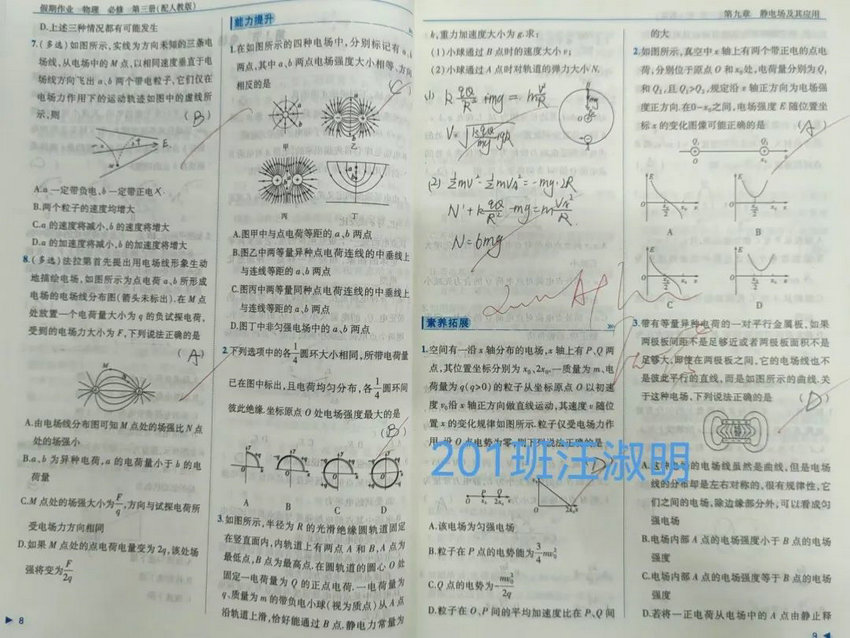 假期作业 物理 必修 第三册(配人教版)
D.上述三种情况都有可能发生
7.(多选)如图所示,实线为方向未知的三条电
场线,从电场中的M点,以相同速度垂直于电
场线方向飞出a、b两个带电粒子,它们仅在
电场力作用下的运动轨迹如图中的虚线所
示,则 (B)
A.a一定带负电,b一定带正电
B.两个粒子的速度均增大
C.a的速度将减小,b的速度将增大
D.a的加速度将减小,b的加速度将增大
8.(多选)法拉第首先提出用电场线形象生动
地描绘电场,如图所示为点电荷a、b所形成
电场的电场线分布图(箭头未标出).在M点
处放置一个电荷量大小为q的负试探电荷,
受到的电场力大小为F,下列说法正确的是
(A)
A.由电场线分布图可知M点处的场强比N点
处的场强小
B.a、b为异种电荷,a的电荷量小于b的电
荷量
C.M点处的场强大小为F/q,方向与试探电荷所
受电场力方向相同
D.如果M点处的点电荷电量变为2q,该处场
强将变为F/2q
8
能力提升
1.在如图所示的四种电场中,分别标记有a、b
两点,其中a、b两点电场强度大小相等、方向
相反的是
甲 乙
丙 丁
A.图甲中与点电荷等距的a、b两点
B.图乙中两等量异种点电荷连线的中垂线上
与连线等距的a、b两点
C.图丙中两等量同种点电荷连线的中垂线上
与连线等距的a、b两点
D.图丁中非匀强电场中的a、b两点
2.下列选项中的各1/4圆环大小相同,所带电荷量
已在图中标出,且电荷均匀分布,各1/4圆环间
彼此绝缘.坐标原点O处电场强度最大的是
(B)
A B C D
3.如图所示,半径为R的光滑绝缘圆轨道固定
在竖直面内,内轨道上有两点A和B,A点为
最低点,B点为最高点.在圆轨道的圆心O处
固定一电荷量为Q的正点电荷.一电荷量为
q、质量为m的带负电小球(视为质点)从A点
沿轨道上滑,恰好能通过B点.静电力常量为
第九章 静电场及其应用
k,重力加速度大小为g.求:
(1)小球通过B点时的速度大小v;
(2)小球通过A点时对轨道的弹力大小N.
N=6mg
素养拓展
1.空间有一沿x轴分布的电场,x轴上有P、Q两
点,其位置坐标分别为x₀、2x₀.一质量为m、电
荷量为q(q>0)的粒子从坐标原点O以初速
度v₀沿x轴正方向做直线运动,其速度v随位
置x的变化规律如图所示.粒子仅受电场力作
用,设O点电势为零,则下列说法正确的是
201班汪淑明
A.该电场为匀强电场
B.粒子在P点的电势能为3/4mv₀²
C.Q点的电势为-mv₀²/2q
D.粒子在O、P间的平均加速度比在P、Q间
的大
2.如图所示,真空中x轴上有两个带正电的点电
荷,分别位于原点O和x₀处,电荷量分别为Q₁
和Q₂,且Q₁>Q₂,规定沿x轴正方向为电场强
度正方向.在0~x₀之间,电场强度E随位置坐
标x的变化图像可能正确的是 (A)
A B
C D
3.带有等量异种电荷的一对平行金属板,如果
两极板间距不是足够近或者两极板面积不是
足够大,即使在两极板之间,它的电场线也不
是彼此平行的直线,而是如图所示的曲线.关
于这种电场,下列说法正确的是 (D)
A.这种电场的电场线虽然是曲线,但是电场
线的分布却是左右对称的,很有规律性,它
们之间的电场,除边缘部分外,可以看成匀
强电场
B.电场内部A点的电场强度小于B点的电场
强度
C.电场内部A点的电场强度等于B点的电场
强度
D.若将一正电荷从电场中的A点由静止释
9